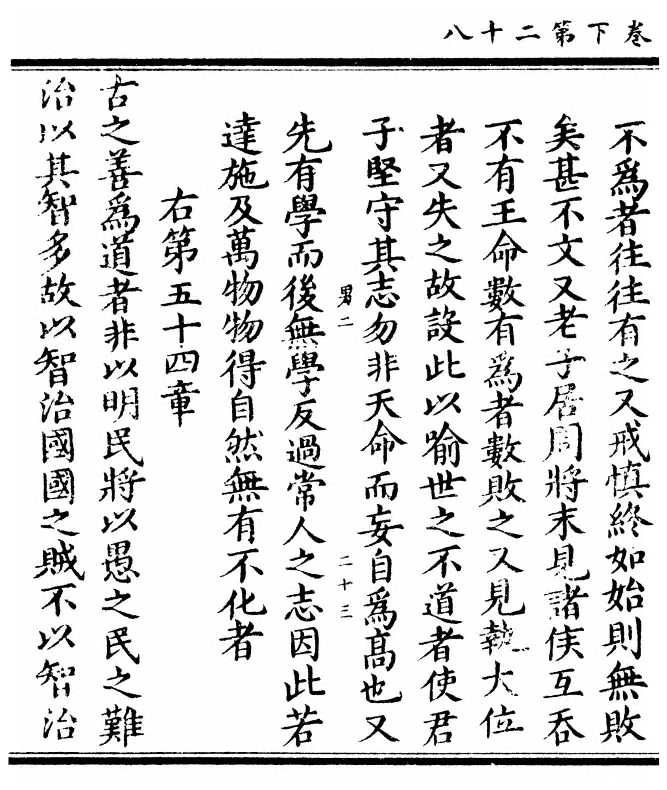 卷下第二十八
不為者往往有之又戒慎終如始則無敗
矣甚不文又老子居周將末見諸侯互吞
不有王命數有為者數敗之又見執大位
者又失之故設此以喻世之不道者使君
子堅守其志勿非天命而妄自為高也又
男二
二十三
先有學而後無學反過常人之志因此若
達施及萬物物得自然無有不化者
右第五十四章
古之善為道者非以明民將以愚之民之難
治以其智多故以智治國國之賊不以智治